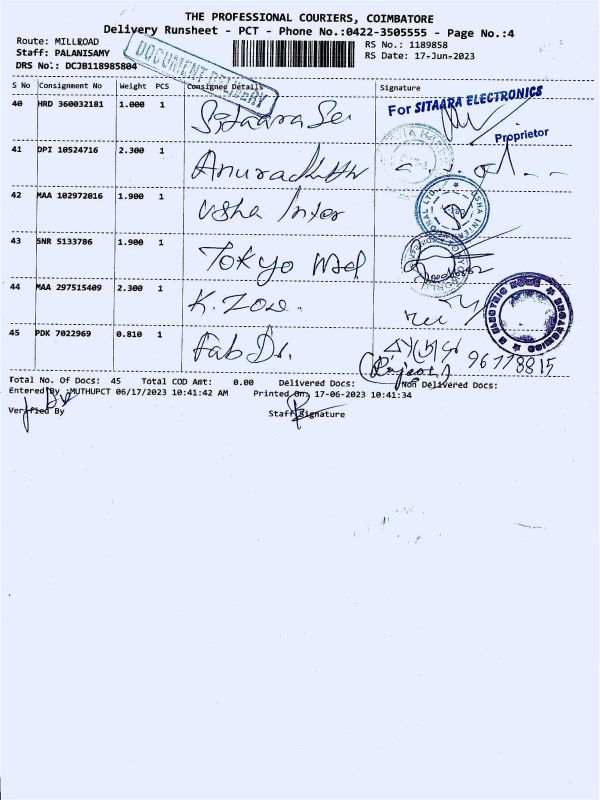 THE PROFESSIONAL COURIERS, COIMBATORE
Delivery Runsheet - PCT - Phone No.:0422-3505555 - Page No.:4
Route: MILLROAD
RS No.: 1189858
Staff: PALANISAMY
RS Date: 17-Jun-2023
DRS No.: DCJB118985804
DOCUMENT DELIVERY
S No Consignment No Weight PCS Consignee Details Signature
40 HRD 360032181 1.000 1 Sitaara Se
For SITAARA ELECTRONICS
Proprietor
41 DPI 10524716 2.300 1
42 MAA 102972016 1.900 1 Usha Inter
43 SNR 5133786 1.900 1 Tokyo Med
44 MAA 297515409 2.300 1 K. Zone.
ELECTRIC HOME
45 PDK 7022969 0.810 1 Fab Dr.
Total No. Of Docs: 45 Total COD Amt: 0.00 Delivered Docs: Non Delivered Docs:
Entered By :MUTHUPCT 06/17/2023 10:41:42 AM Printed On: 17-06-2023 10:41:34
Verified By Staff Signature